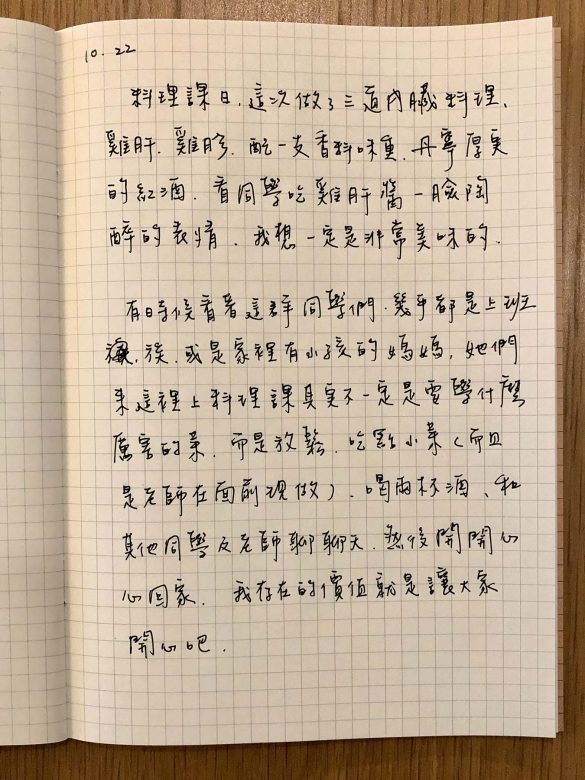 10.22
料理課日，這次做了三道內臟料理、
雞肝、雞胗，配一支香料味重，丹寧厚實
的紅酒，看同學吃雞肝醬一臉陶
醉的表情，我想一定是非常美味的。
有時候看著這群同學們，幾乎都是上班
族，或是家裡有小孩的媽媽，她們
來這裡上料理課其實不一定是要學什麼
厲害的菜，而是放鬆，吃點小菜（而且
是老師在面前現做），喝兩杯酒、和
其他同學及老師聊聊天，然後開開心
心回家，我存在的價值就是讓大家
開心吧。